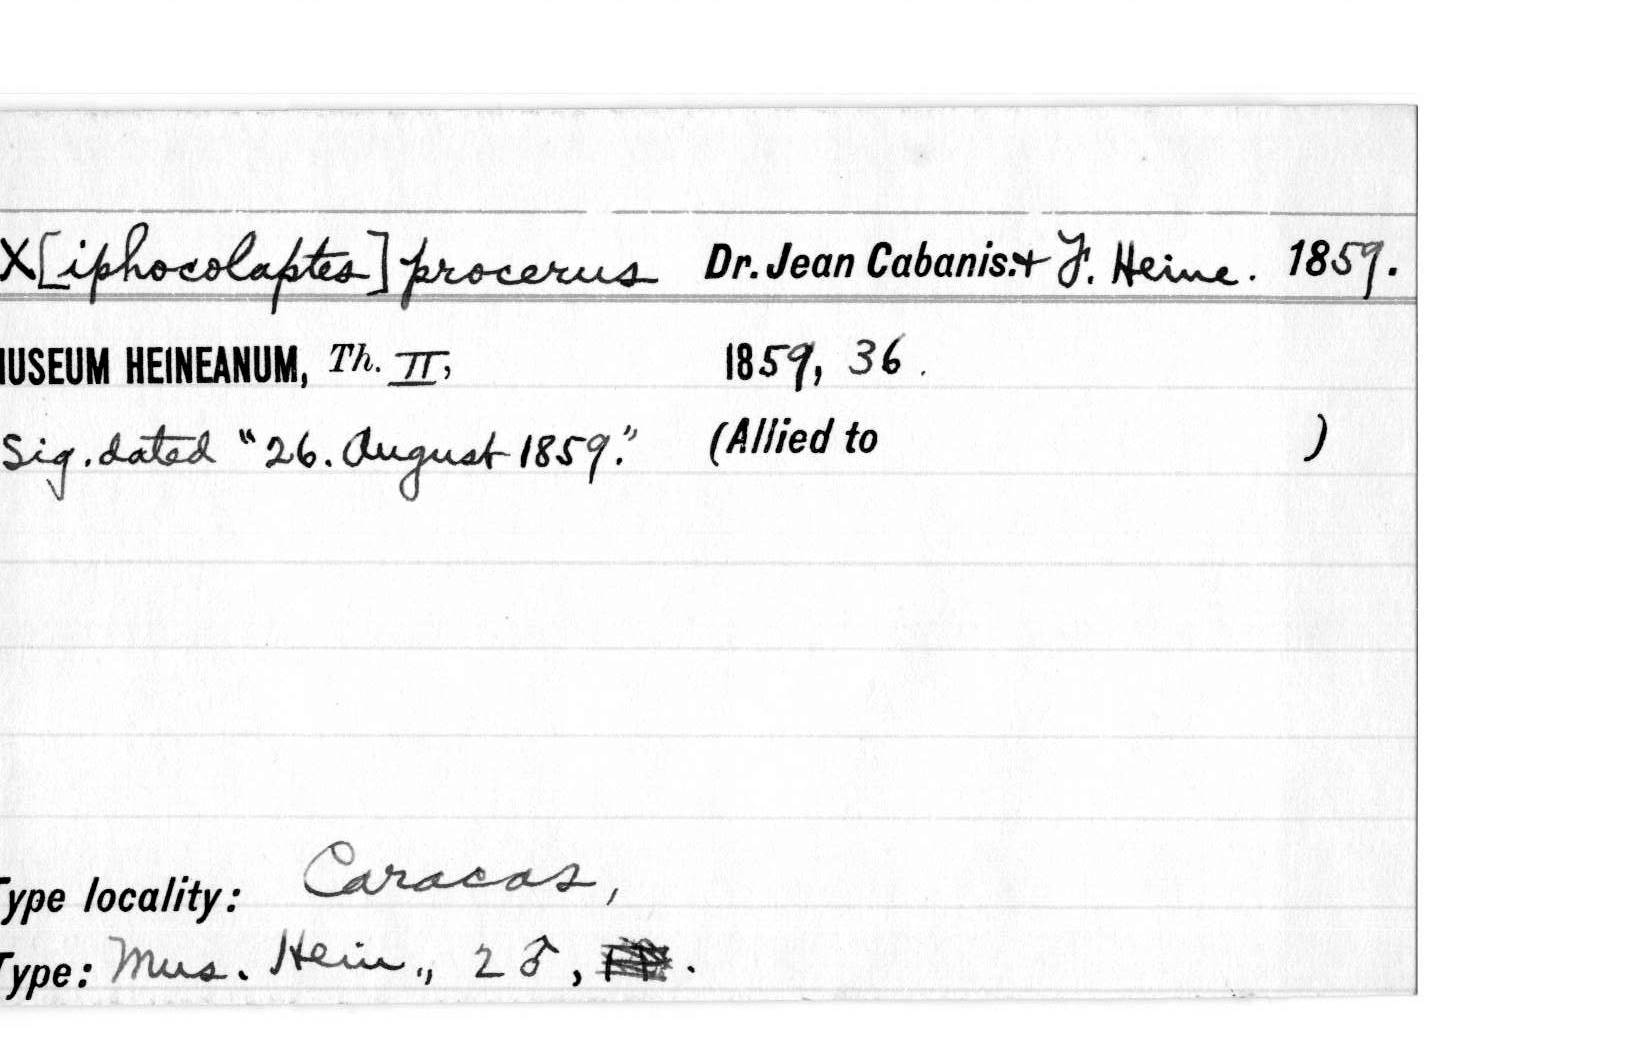 X[iphocolaptes] procerus Dr. Jean Cabanis.+ F. Heine. 1859.
USEUM HEINEANUM, Th. II, 1859, 36.
Sig. dated "26. August 1859." (Allied to )
Type locality: Caracas,
Type: Mus. Hein., 2 ♂, .